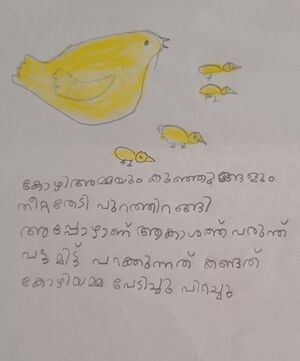 കോഴിഅമ്മയും കുഞ്ഞുങ്ങളും
തീറ്റതേടി പുറത്തിറങ്ങി
അപ്പോഴാണ് ആകാശത്ത് പരുന്ത്
വട്ടമിട്ട് പറക്കുന്നത് കണ്ടത്
കോഴിയമ്മ പേടിച്ചു വിറച്ചു